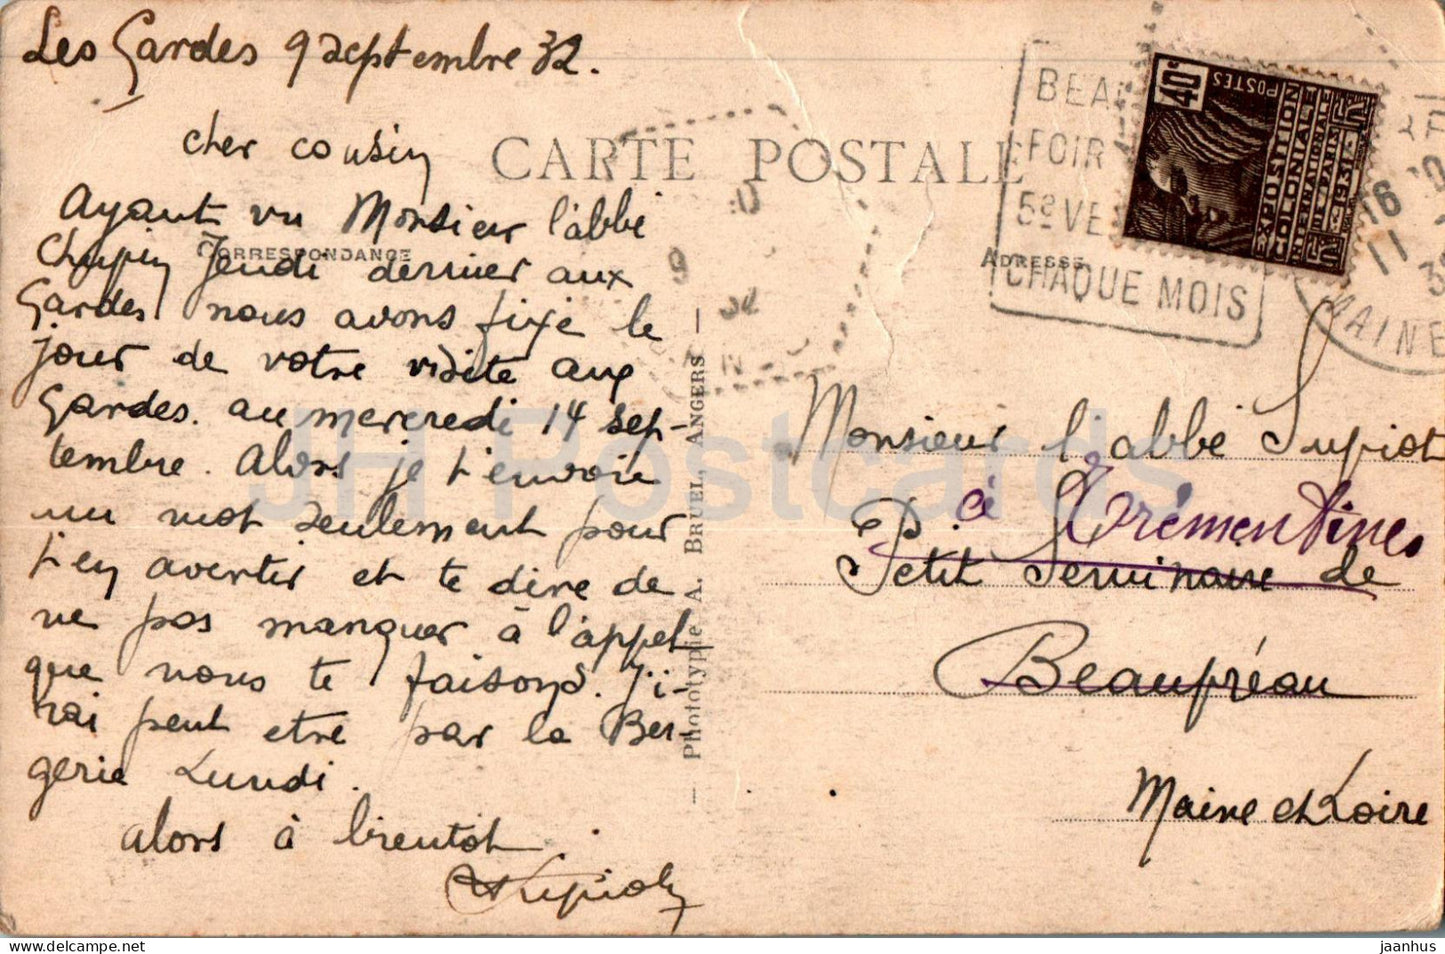 Les Gardes 9 septembre 32.
cher cousin
Ayant vu Monsieur l'abbé
Chupin Jeudi dernier aux
Gardes nous avons fixé le
jour de votre visite aux
Gardes. au mercredi 14 sep-
tembre. Alors je t'envoie
un mot seulement pour
t'en avertir et te dire de
ne pas manquer à l'appel
que nous te faisons. J'i-
rai peut etre par la Ber-
gerie Lundi.
alors à bientôt
Supiot
CARTE POSTALE
CORRESPONDANCE
ADRESSE
— Phototypie A. BRUEL, ANGERS —
BEAU
FOIR
5e VE
CHAQUE MOIS
40c
POSTES
EXPOSITION
COLONIALE
INTERNATIONALE
DE PARIS
1931
16
11
MAINE
Monsieur l'abbé Supiot
à Trémentines
Petit Seminaire de
Beaupréau
Maine et Loire
JH Postcards
jaanhus